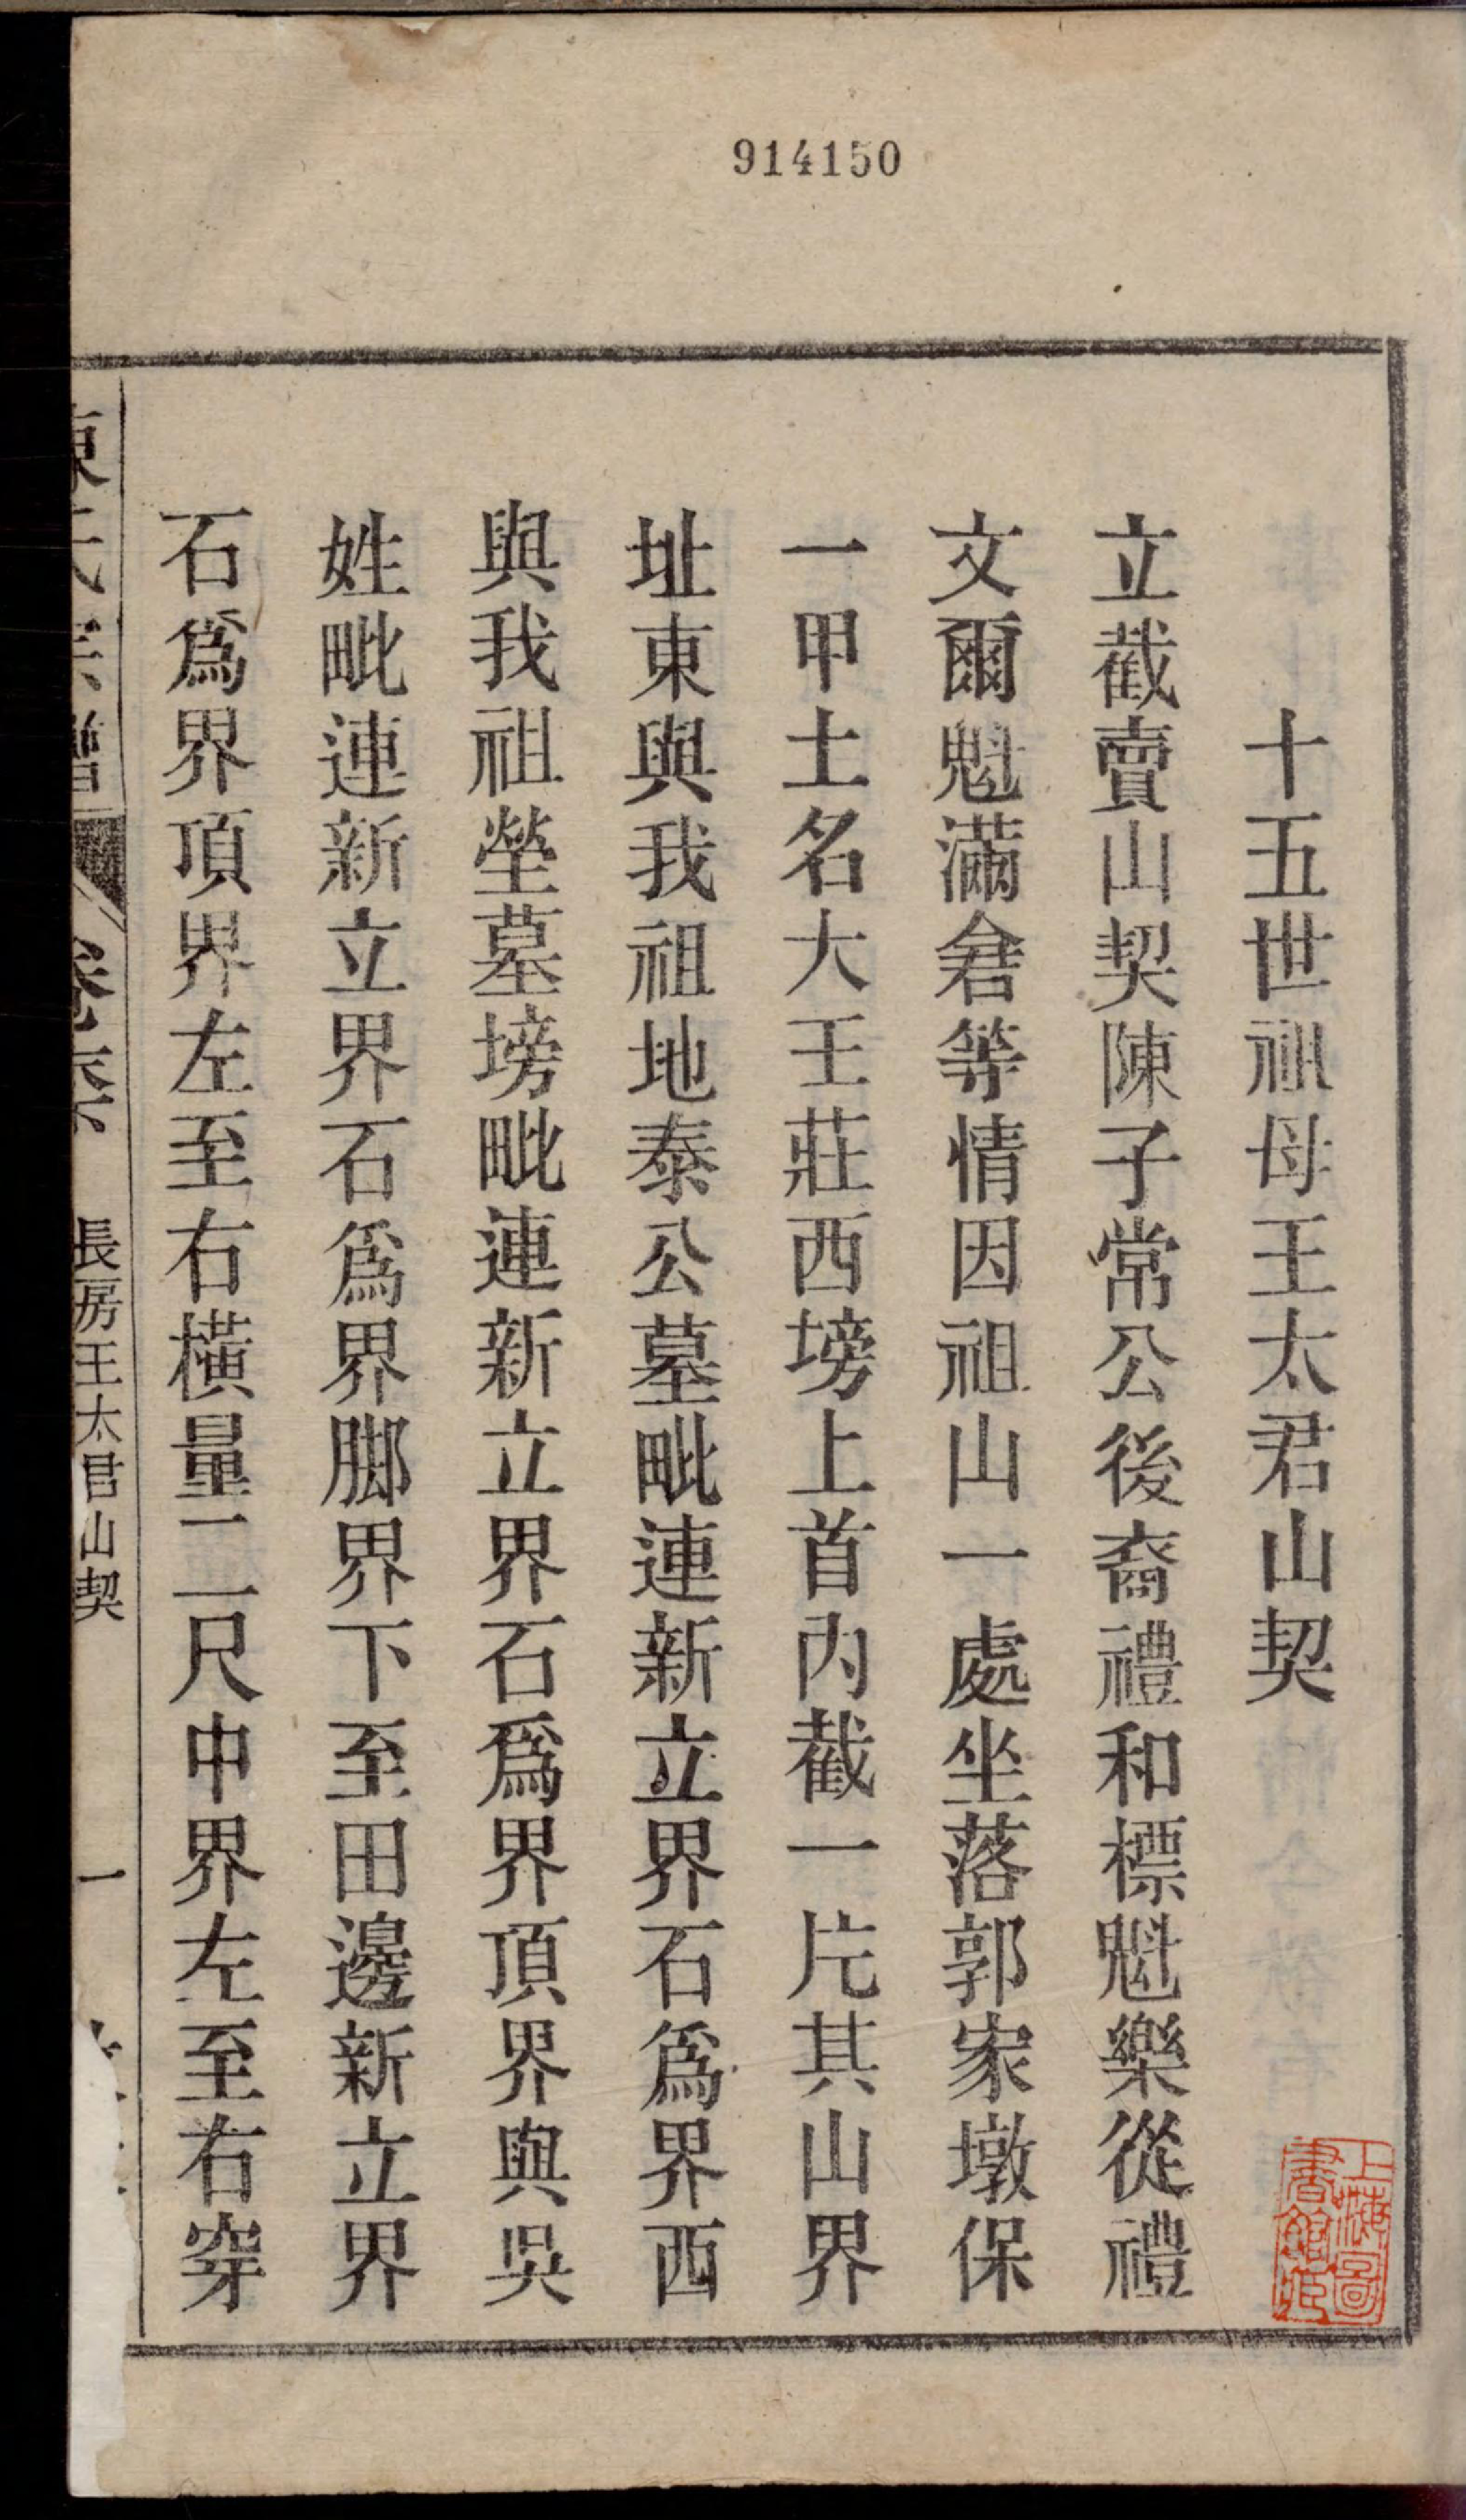 914150
十五世祖母王太君山契
立截賣山契陳子常公後裔禮和標魁樂從禮
文爾魁滿畲等情因祖山一處坐落郭家墩保
一甲土名大王莊西塝上首內截一片其山界
址東與我祖地泰公墓毗連新立界石爲界西
與我祖塋墓塝毗連新立界石爲界頂界與吳
姓毗連新立界石爲界脚界下至田邊新立界
石爲界頂界左至右橫量二一尺中界左至右穿
長房王太君山契
一
上海圖書館藏